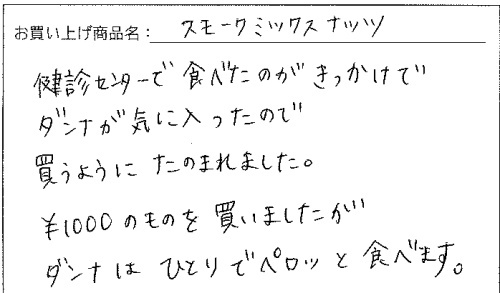 お買い上げ商品名：スモークミックスナッツ
健診センターで食べたのがきっかけで
ダンナが気に入ったので
買うようにたのまれました。
¥1000のものを買いましたが
ダンナはひとりでペロッと食べます。